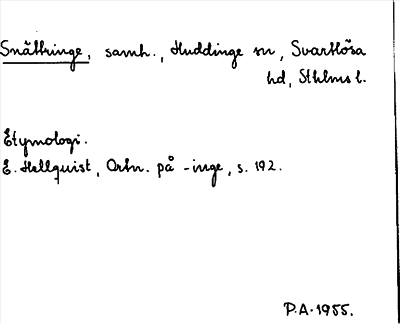 Snättringe, samh., Huddinge sn, Svartlösa
hd, Sthlms l.
Etymologi.
E. Hellquist, Ortn. på -inge, s. 192.
P.A. 1955.